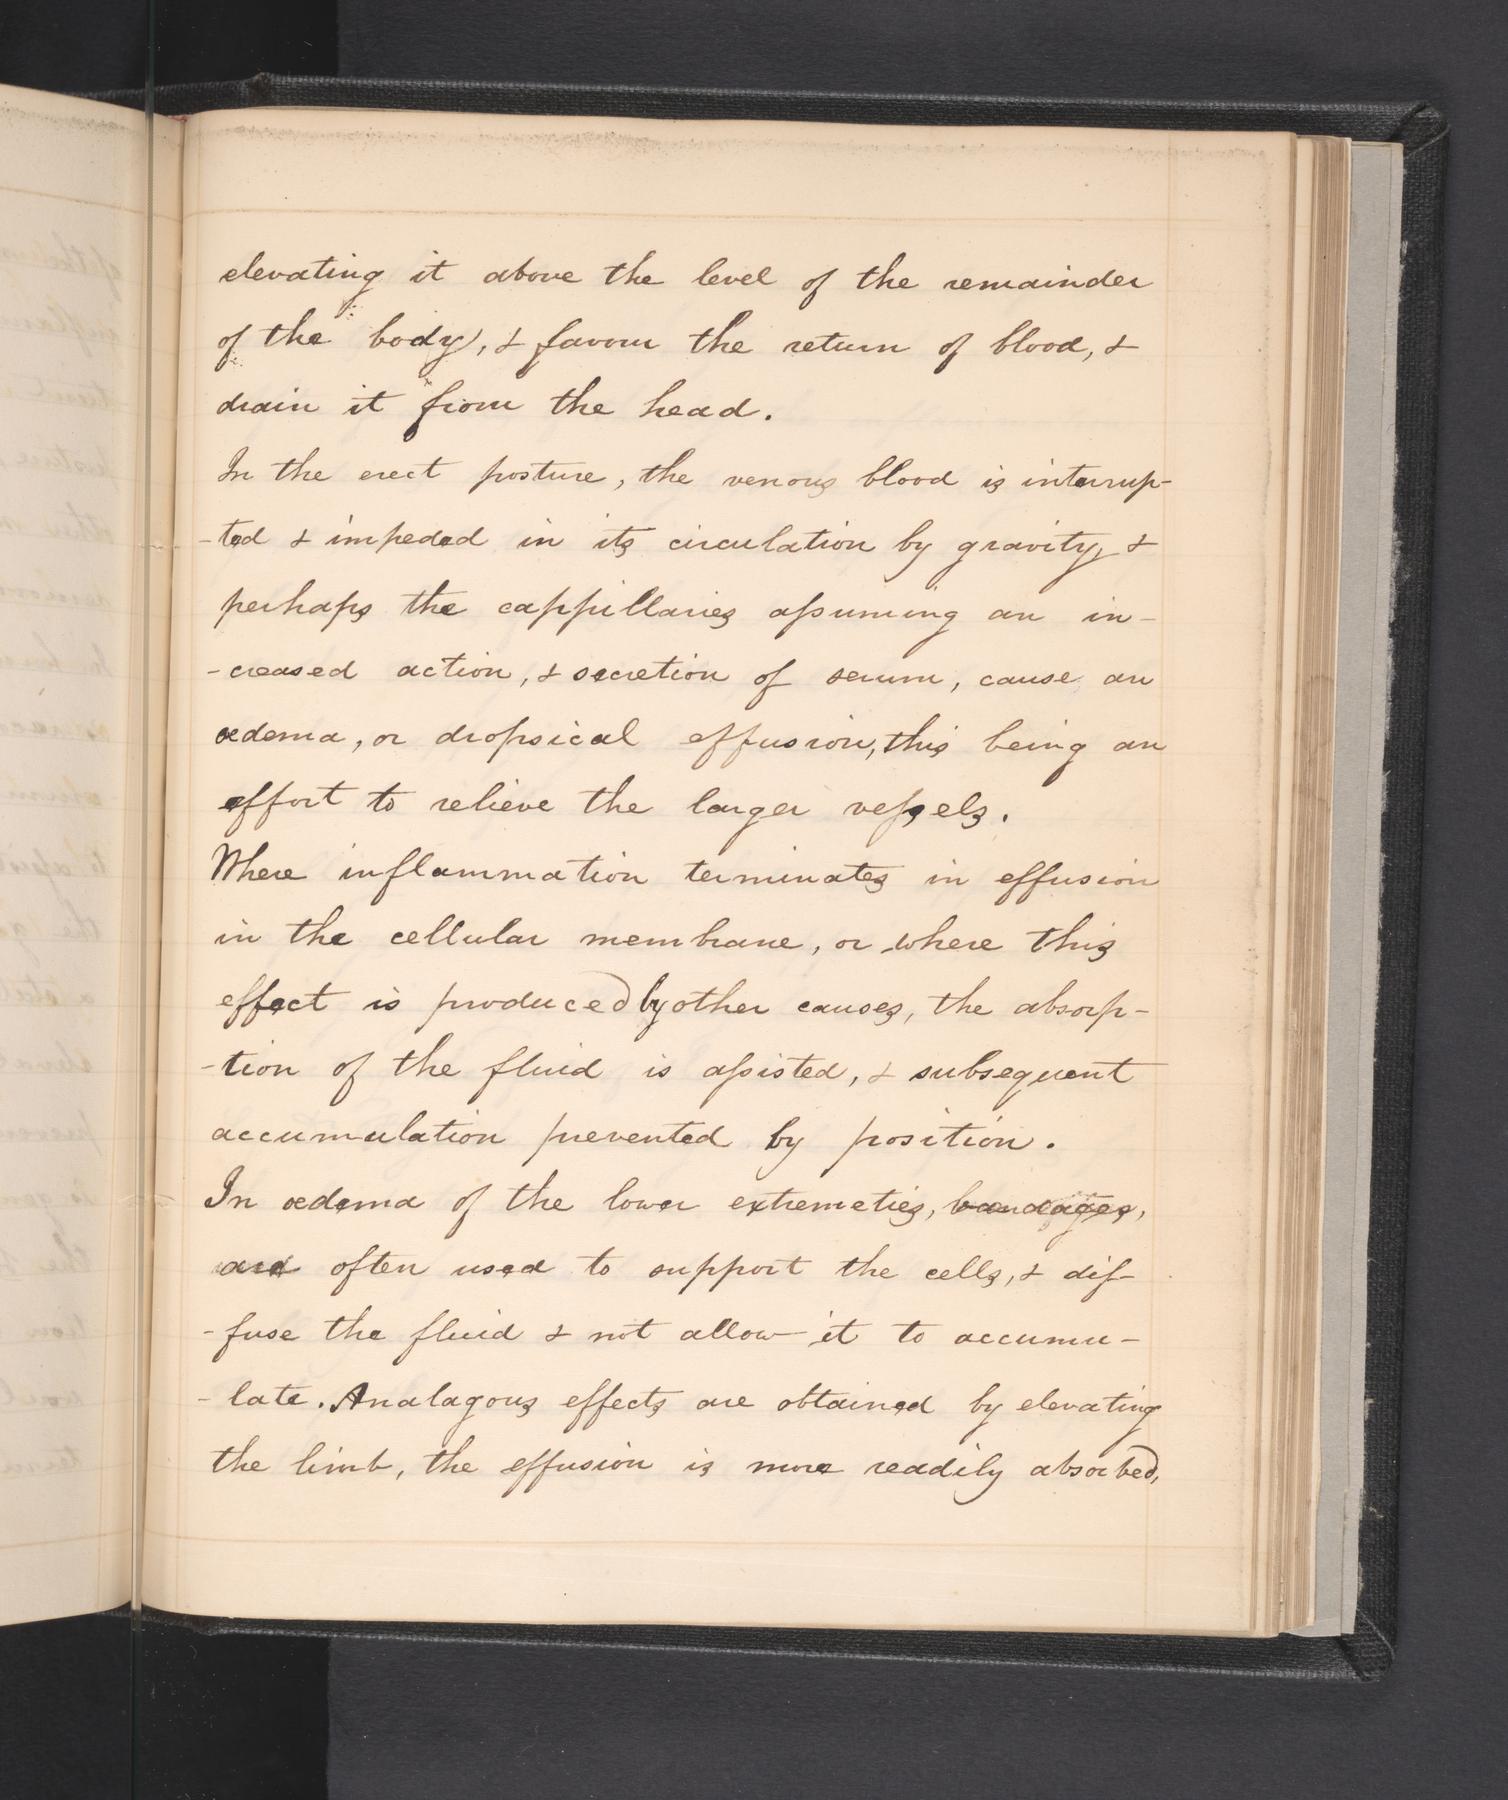 elevating it above the level of the remainder
of the body, & favour the return of blood, &
drain it from the head.
In the erect posture, the venous blood is interrup-
-ted & impeded in its circulation by gravity, &
perhaps the cappillaries assuming an in-
-creased action, & secretion of serum, cause an
œdema, or dropsical effusion, this being an
effort to relieve the larger vessels.
Where inflammation terminates in effusion
in the cellular membrane, or where this
effect is produced by other causes, the absorp-
-tion of the fluid is assisted, & subsequent
accumulation prevented by position.
In œdema of the lower extremeties, bandages,
are often used to support the cells, & dif-
-fuse the fluid & not allow it to accumu-
-late. Analagous effects are obtained by elevating
the limb, the effusion is more readily absorbed,